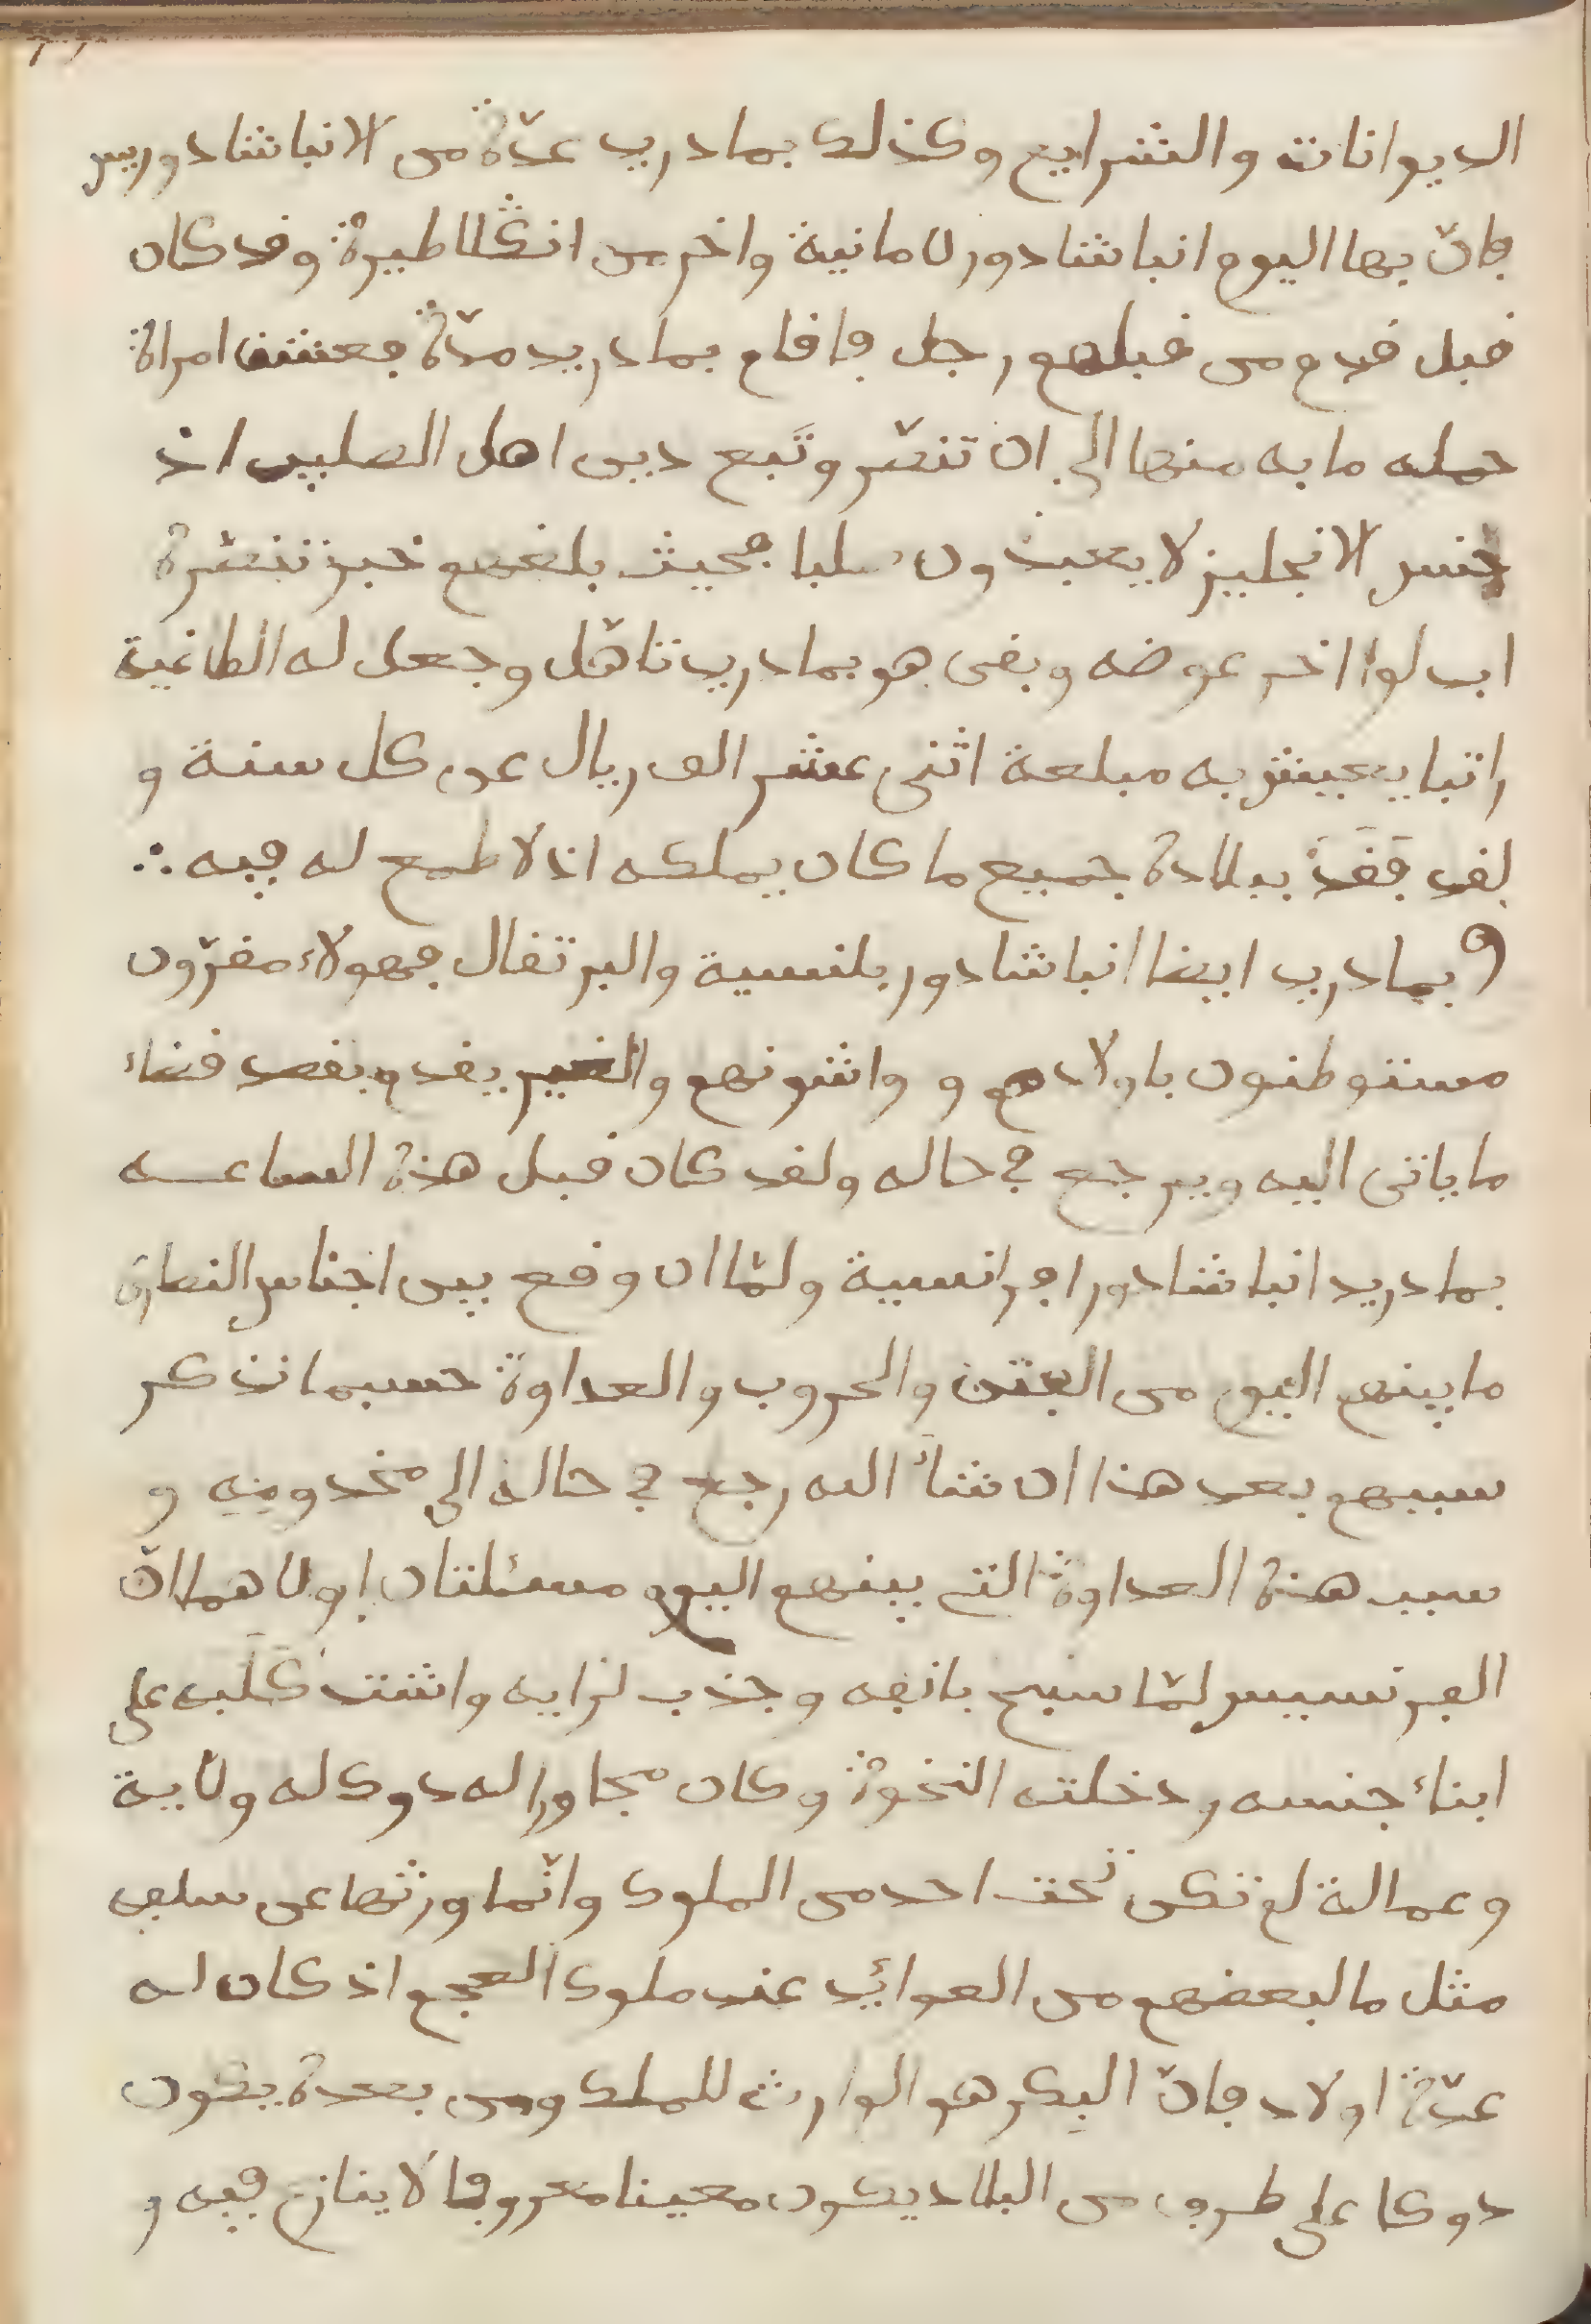 الديوانات والشرايع وكذلك بمادريد عدّة من الانباشادوريس
فانّ بها اليوم انباشادور لامانية واخر من انڭلاطيرة وقد كان
قبل قدم من قبلهم رجل فاقام بمادريد مدّة فعشق امراة
حمله ما به منها الى ان تنصّر وتَبع دين اهل الصليب اذ
جنس الانجليز لا يعبدون صلبا فحيث بلغهم خبر تنصّره
ابدلوا اخر عوضه وبقى هو بمادريد تاهّل وجعل له الطاغية
راتبا يعيش به مبلغه اثنى عشر الف ريال عن كل سنة و
لقد فَقَدَ ببلاده جميع ما كان يملكه اذ لا طمع له فيه ∴
وبمادريد ايضا انباشادور بلنسية والبرتقال فهولاء مقرّون
مستوطنون باولادهم و واشونهم والغير يقدم بقصد قضاء
ما ياتى اليه ويرجع في حاله ولقد كان قبل هذه الساعــه
بمادريد انباشادور افرانسية ولمّا ان وقع بين اجناس النصارى
ما بينهم اليوم من الفتن والحروب والعداوة حسبما نذكر
سببهم بعد هذا ان شاء الله رجع في حاله الى مخدومه و
سبب هذه العداوة التى بينهم اليوم مسئلتان اولاهما انّ
الفرنسيس لمّا سنح بانفه وجذب لرايه واشتد كَلَبه على
ابناء جنسه ودخلته النخوة وكان مجاورا له دوك له ولاية
وعمالة لم تكن تحت احد من الملوك وانّما ورثها عن سلف
مثل ما لبعضهم من العوائد عند ملوك العجم اذ كان له
عدّة اولاد فانّ البكر هو الوارث للملك ومن بعده يكون
دوكا على طرف من البلاد يكون معينا معروفا لا ينازع فيه و